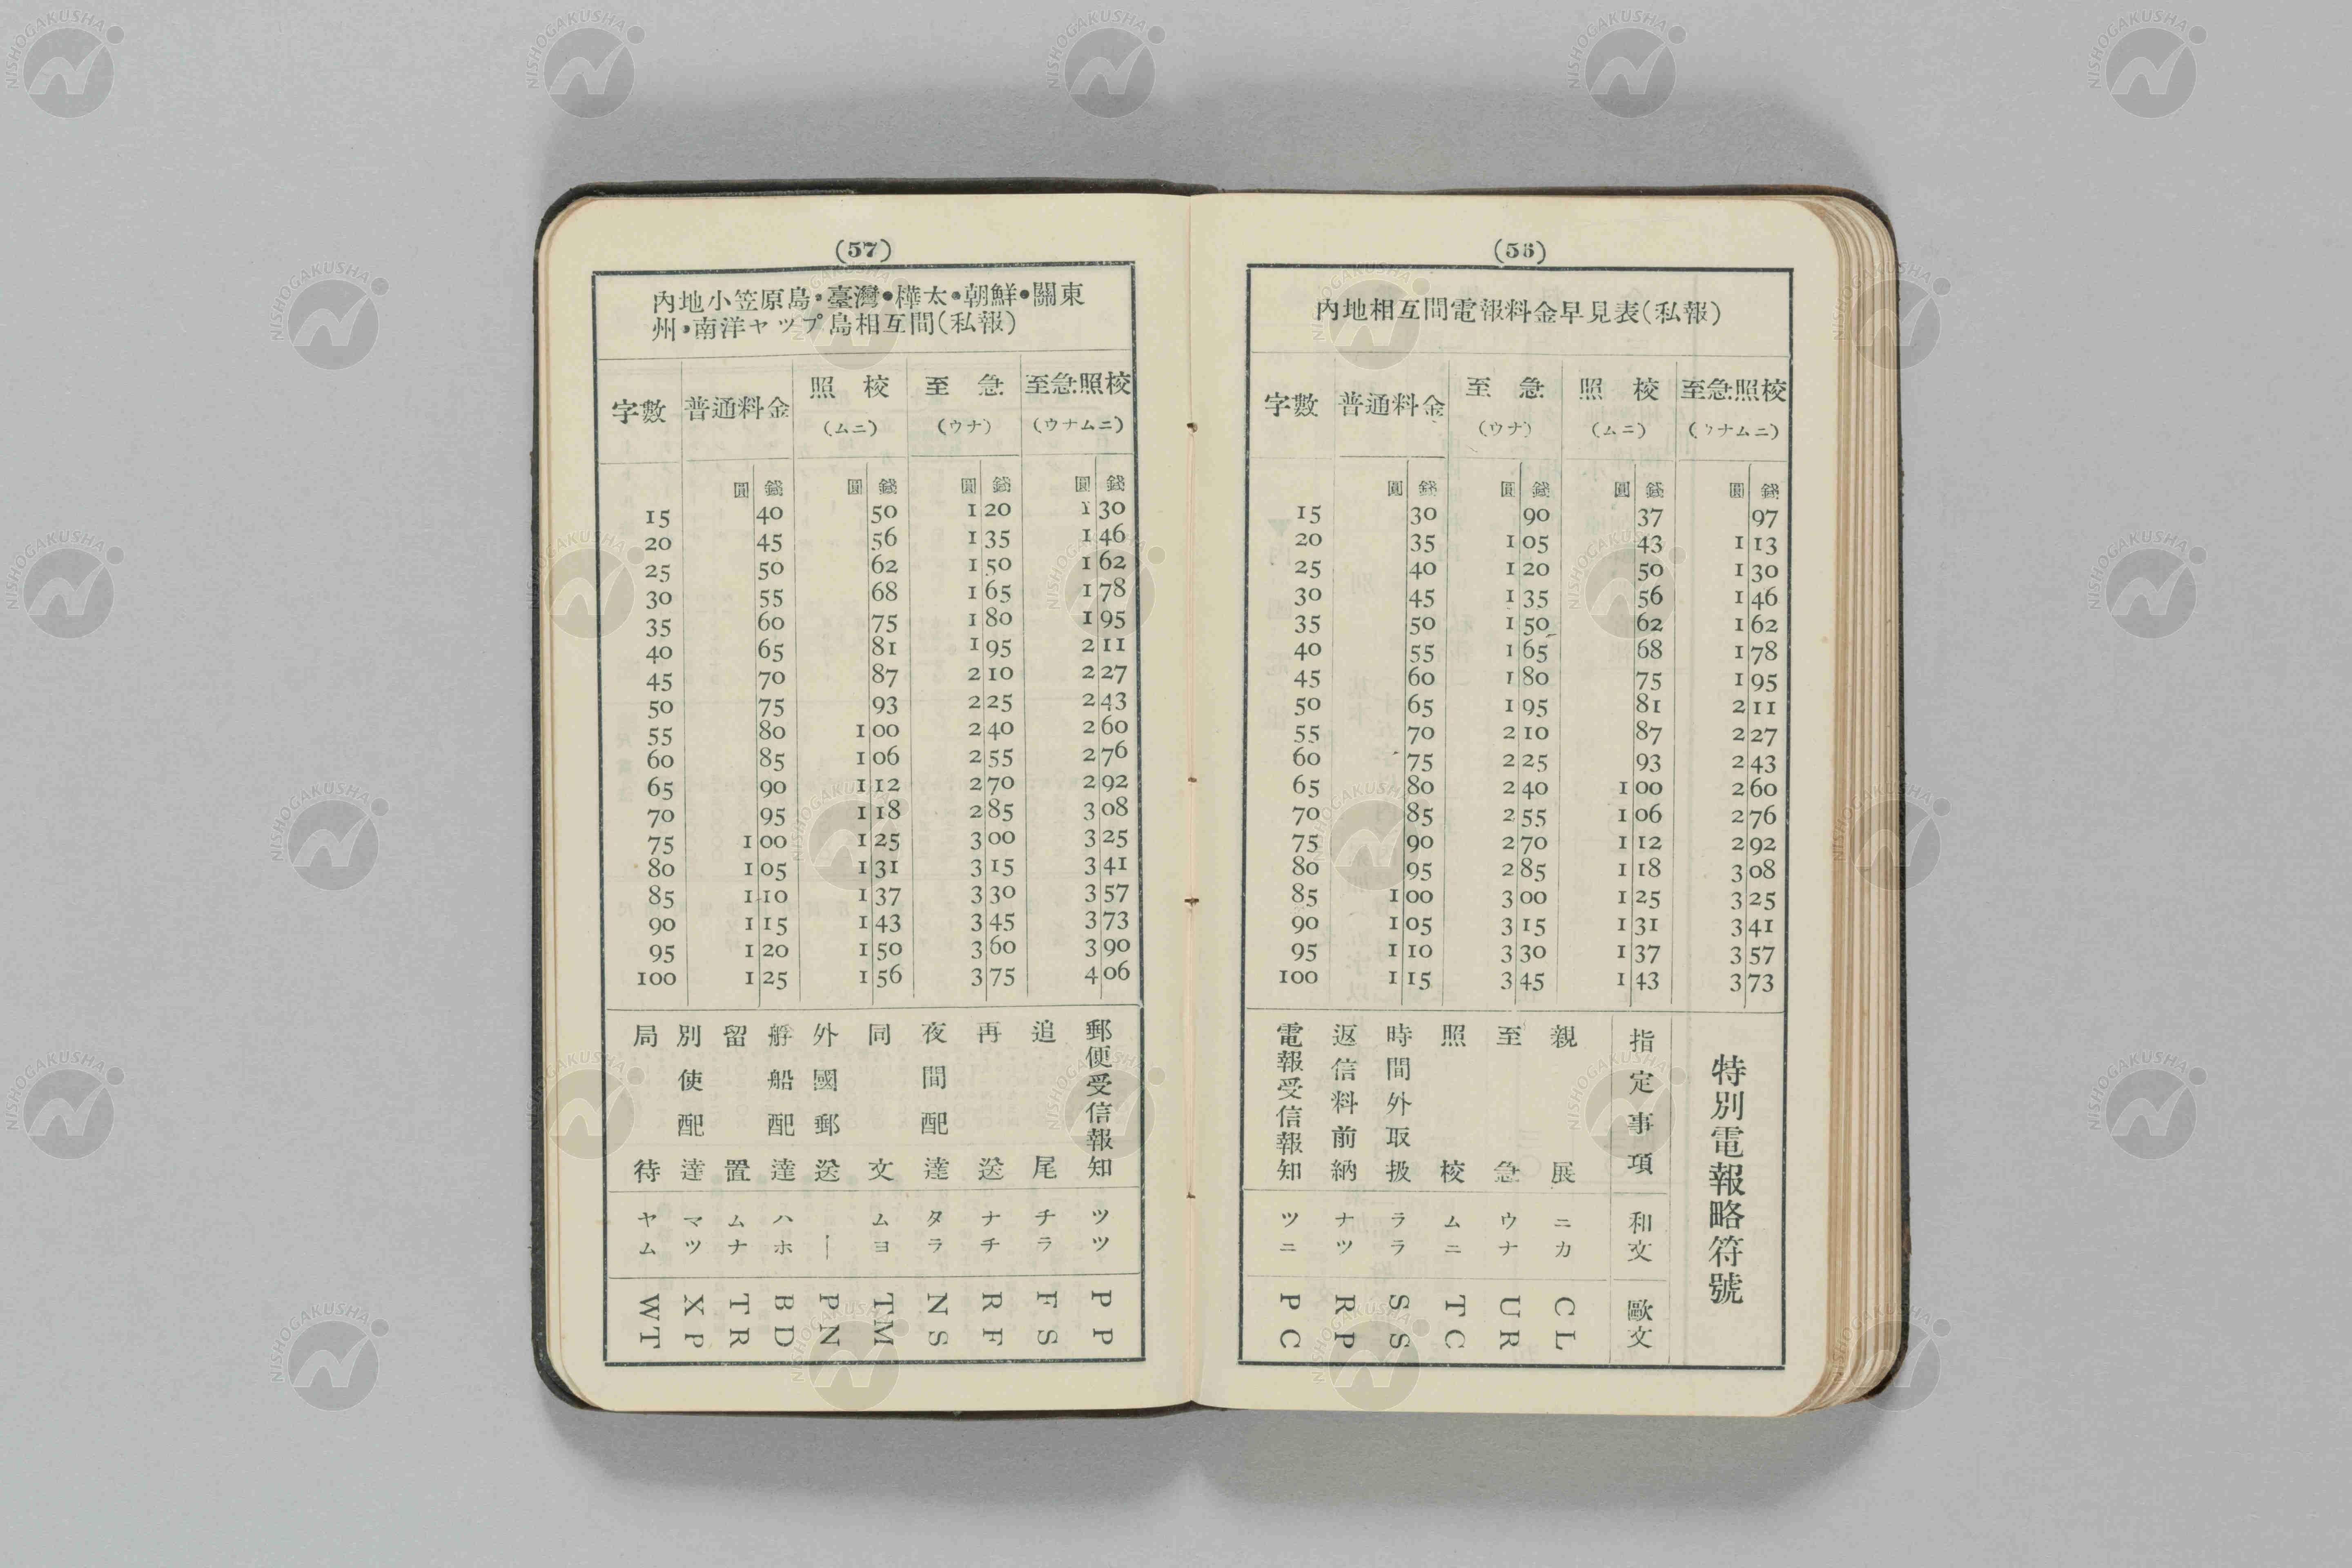 (56)
內地相互間電報料金早見表(私報)
字數 普通料金 至急(ウナ) 照校(ムニ) 至急照校(ウナムニ)
圓 錢 圓 錢 圓 錢 圓 錢
15 30 90 37 97
20 35 1 05 43 1 13
25 40 1 20 50 1 30
30 45 1 35 56 1 46
35 50 1 50 62 1 62
40 55 1 65 68 1 78
45 60 1 80 75 1 95
50 65 1 95 81 2 11
55 70 2 10 87 2 27
60 75 2 25 93 2 43
65 80 2 40 1 00 2 60
70 85 2 55 1 06 2 76
75 90 2 70 1 12 2 92
80 95 2 85 1 18 3 08
85 1 00 3 00 1 25 3 25
90 1 05 3 15 1 31 3 41
95 1 10 3 30 1 37 3 57
100 1 15 3 45 1 43 3 73
特別電報略符號
指定事項 和文 歐文
親展 ニカ CL
至急 ウナ UR
照校 ムニ TC
時間外取扱 ララ SS
返信料前納 ナツ RP
電報受信報知 ツニ PC
(57)
內地小笠原島•臺灣•樺太•朝鮮•關東
州•南洋ヤップ島相互間(私報)
字數 普通料金 照校(ムニ) 至急(ウナ) 至急照校(ウナムニ)
圓 錢 圓 錢 圓 錢 圓 錢
15 40 50 1 20 1 30
20 45 56 1 35 1 46
25 50 62 1 50 1 62
30 55 68 1 65 1 78
35 60 75 1 80 1 95
40 65 81 1 95 2 11
45 70 87 2 10 2 27
50 75 93 2 25 2 43
55 80 1 00 2 40 2 60
60 85 1 06 2 55 2 76
65 90 1 12 2 70 2 92
70 95 1 18 2 85 3 08
75 1 00 1 25 3 00 3 25
80 1 05 1 31 3 15 3 41
85 1 10 1 37 3 30 3 57
90 1 15 1 43 3 45 3 73
95 1 20 1 50 3 60 3 90
100 1 25 1 56 3 75 4 06
郵便受信報知 ツツ PP
追尾 チラ FS
再送 ナチ RF
夜間配達 タラ NS
同文 ムヨ TM
外國郵送 — PN
艀船配達 ハホ BD
留置 ムナ TR
別使配達 マツ XP
局待 ヤム WT
NISHOGAKUSHA